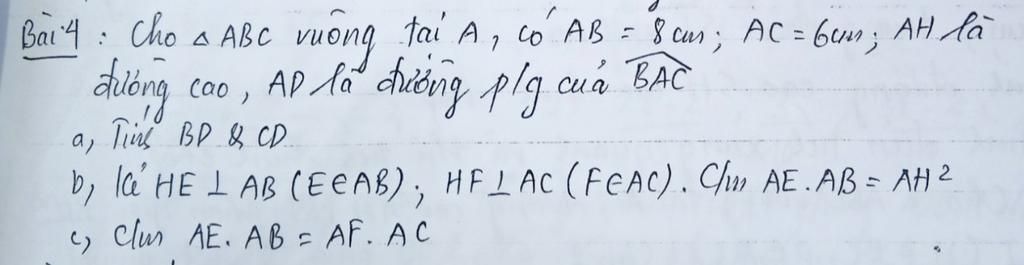 Bài 4 : Cho △ ABC vuông tại A, có AB = 8 cm ; AC = 6 cm ; AH là
đường cao, AD là đường p/g của BAC
a, Tính BD & CD
b, Kẻ HE ⊥ AB (E∈AB) ; HF ⊥ AC (F∈AC). C/m AE . AB = AH²
c, C/m AE . AB = AF . AC